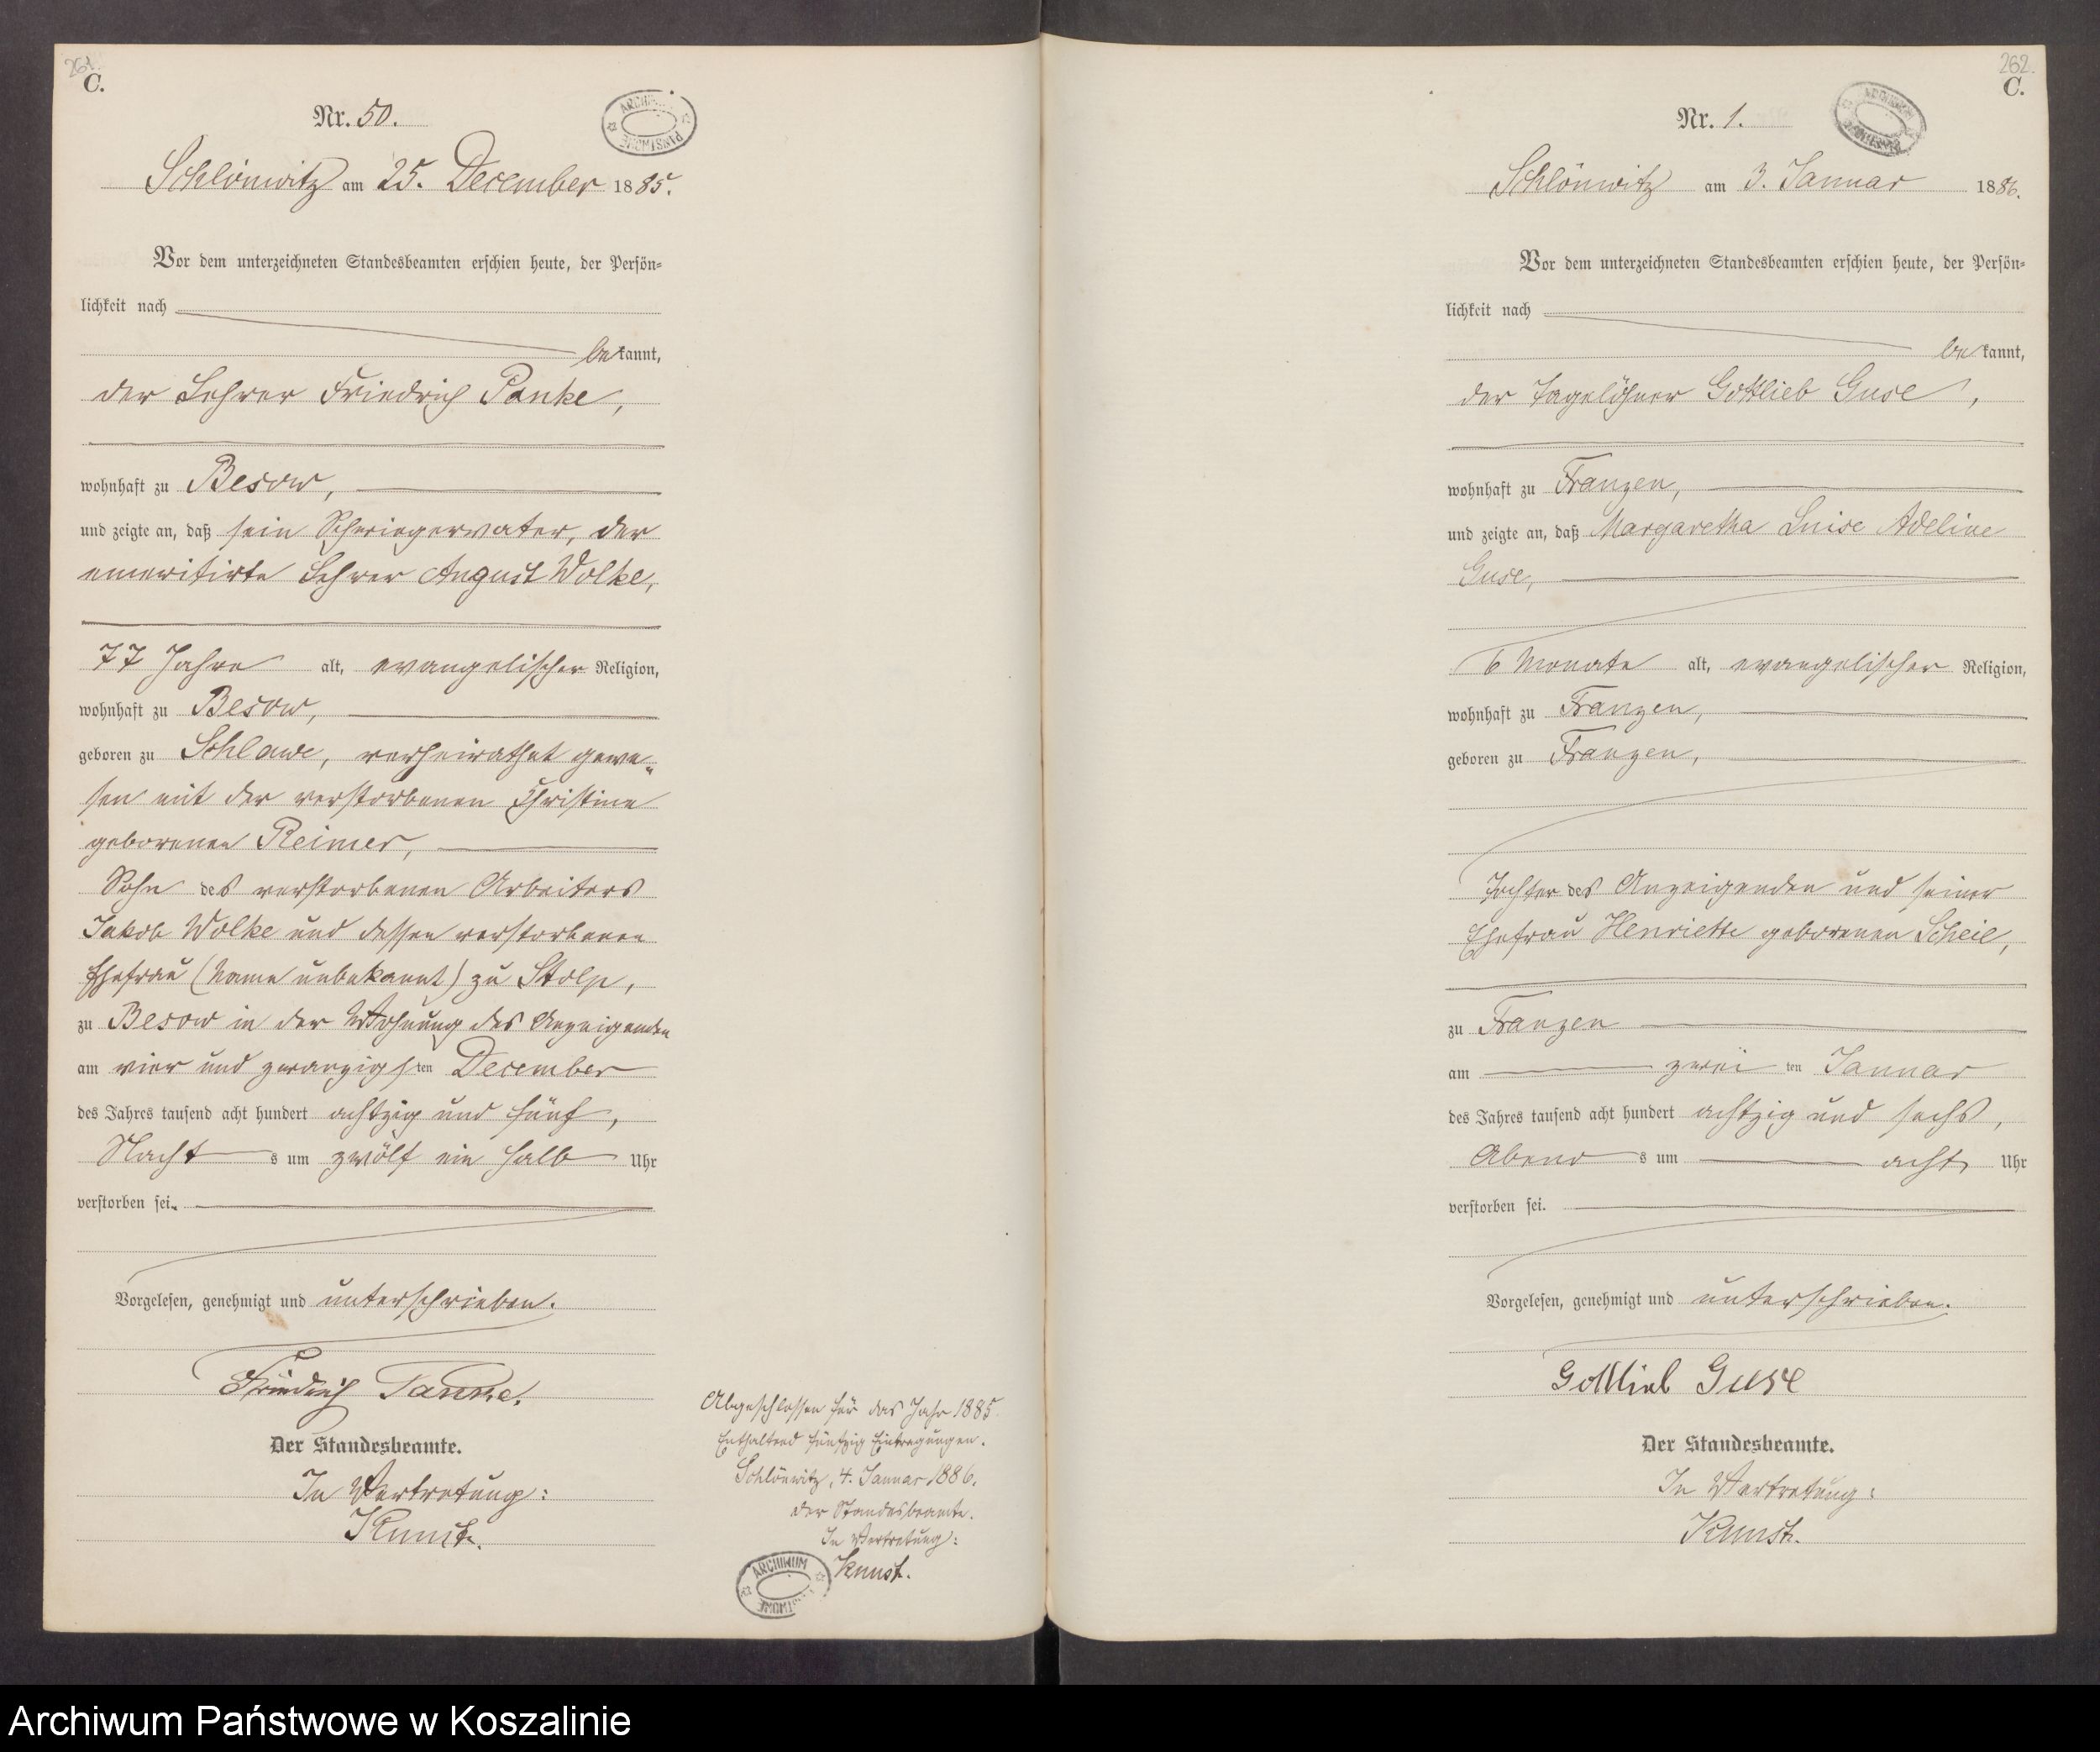 261.
C.
Nr. 50.
ARCHIWUM PAŃSTWOWE
Schlönwitz am 25. December 1885.
Vor dem unterzeichneten Standesbeamten erschien heute, der Persön-
lichkeit nach
bekannt,
der Lehrer Friedrich Panke,
wohnhaft zu Besow,
und zeigte an, daß sein Schwiegervater, der
emeritirte Lehrer August Wolke,
77 Jahre alt, evangelischer Religion,
wohnhaft zu Besow,
geboren zu Schlawe, verheirathet gewe-
sen mit der verstorbenen Christine
geborenen Reimer,
Sohn des verstorbenen Arbeiters
Jakob Wolke und dessen verstorbenen
Ehefrau (Name unbekannt) zu Stolp,
zu Besow in der Wohnung des Anzeigenden
am vier und zwanzigsten December
des Jahres tausend acht hundert achtzig und fünf,
Nachts um zwölf ein halb Uhr
verstorben sei.
Vorgelesen, genehmigt und unterschrieben.
Friedrich Panke.
Der Standesbeamte.
In Vertretung:
Kunst.
Abgeschlossen für das Jahr 1885.
Enthaltend fünfzig Eintragungen.
Schlönwitz, 4. Januar 1886.
Der Standesbeamte.
In Vertretung:
Kunst.
ARCHIWUM PAŃSTWOWE
262.
C.
Nr. 1.
ARCHIWUM PAŃSTWOWE
Schlönwitz am 3. Januar 1886.
Vor dem unterzeichneten Standesbeamten erschien heute, der Persön-
lichkeit nach
bekannt,
der Tagelöhner Gottlieb Guse,
wohnhaft zu Franzen,
und zeigte an, daß Margaretha Luise Adeline
Guse,
6 Monate alt, evangelischer Religion,
wohnhaft zu Franzen,
geboren zu Franzen,
Tochter des Anzeigenden und seiner
Ehefrau Henriette geborenen Scheil,
zu Franzen
am zweiten Januar
des Jahres tausend acht hundert achtzig und sechs,
Abends um acht Uhr
verstorben sei.
Vorgelesen, genehmigt und unterschrieben.
Gottlieb Guse
Der Standesbeamte.
In Vertretung:
Kunst.
Archiwum Państwowe w Koszalinie